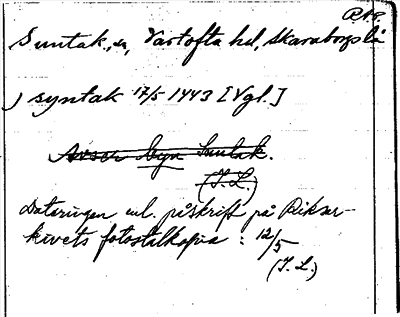 Suntak, sn, Vartofta hd, Skaraborgs lä
) syntak 17/5 1443 [Vgl.]
Avser byn Suntak.
(I.L.)
Dateringen enl. påskrift på Riksar-
kivets fotostatkopia : 12/5
(I.L.)